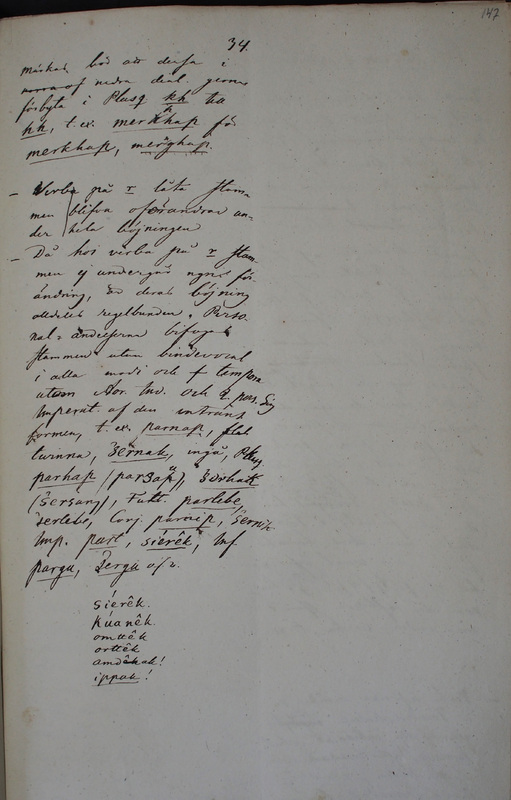 147
34.
märkas bör att dessa i
norra of nedra dial. gerna
förbyta i Plusq kh till
kk, t. ex. merkkap för
merkhap, merghap.
– Verba på r låta stam-
men blifva oförändrad un-
der hela böjningen
– Då hos verba på r stam-
men ej undergår ngn för-
ändring, är deras böjning
alldeles regelbunden. Perso-
nal-ändelserna bifogas
stammen utan bindevocal
i alla modi och tempora
utom Aor. Ind. och 2 pers. Sing
Imperat. af den intrans
formen, t. ex. parnap, flat
tvinna, šernak, ingå, Plusq
parhap (pargap), šorhak
(šersang), Futt. parlebe,
šerlebe, Conj. parnip, šernik
Imp. part, siérêk, Inf.
pargu, šergu o. s. v.
siérêk.
Kúanêk.
omttêk
orttêk
amdêkak!
ippak!